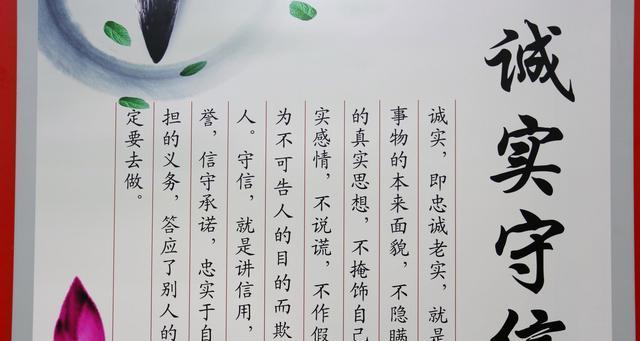 诚实守信
诚实，即忠诚老实，就是
事物的本来面貌，不隐瞒
的真实思想，不掩饰自己
实感情，不说谎，不作假
为不可告人的目的而欺
人。守信，就是讲信用，
誉，信守承诺，忠实于自
担的义务，答应了别人的
定要去做。